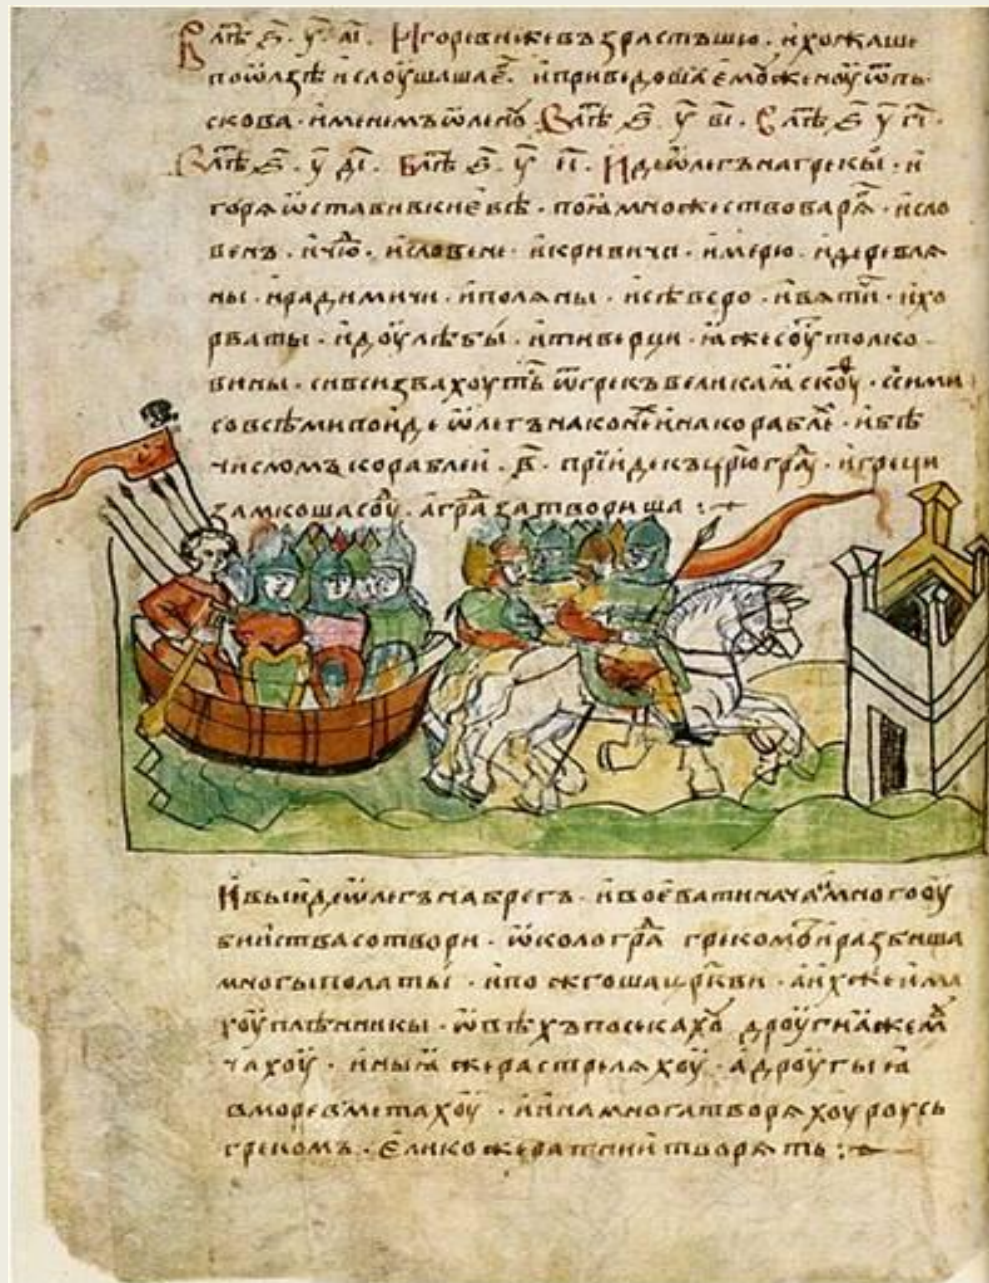 В лѣⷮ ҂ѕ҃. у҃. а҃і. Игореви же възрастъшю. и хожаше
по ѡлзѣ и слоушаша є҆гⷪ. и приведоша ємоу женоу ѿ пь
скова. именемъ ѡленоу. В лѣⷮ ҂ѕ҃. у҃ в҃і. В лѣⷮ ҂ѕ҃ у҃ г҃і.
В лѣⷮ ҂ѕ҃. у҃ д҃і. В лѣⷮ ҂ѕ҃. у҃ е҃і. Иде ѡлегъ на грекы. и
горя ѡставив киевѣ. поя множество варѧⷢ. и сло
венъ. и чюⷣ. и словене. и кривичи. и мерю. и деревлѧ
ны. и радимичи. и полѧны. и сѣверо. и вѧтиⷱ. и хо
рваты. и доулѣбы. и тиверци. ꙗже соуⷮ толко
вины. си вси звахоутьⷭ ѿ грекъ великаꙗ скоуⷴ. с сими
со всѣми поиде ѡлегъ на конеⷯ и на кораблеⷯ. и бѣ
числомъ кораблеи. в҃. приіде къ црⷭ҇ю граⷣ. и греци
замкоша соуⷣ. а граⷣ затвориша :~
И выиде ѡлегъ на брегъ. и воевати начаⷧ. и много оу
бииства сотвори. ѡколо граⷣ грекомъ и разбиша
многы полаты. и пожгоша црⷭ҇кви. а ихже има
хоу плѣнникы. ѡвѣхъ посѣкахоу дроугиꙗ же мⷱ
чахоу. иныꙗ же растрелѧхоу. а дроугыꙗ
в море вметахоу. и ина многа творѧхоу роусь
грекомъ. Єлико же ратнии творѧть :~